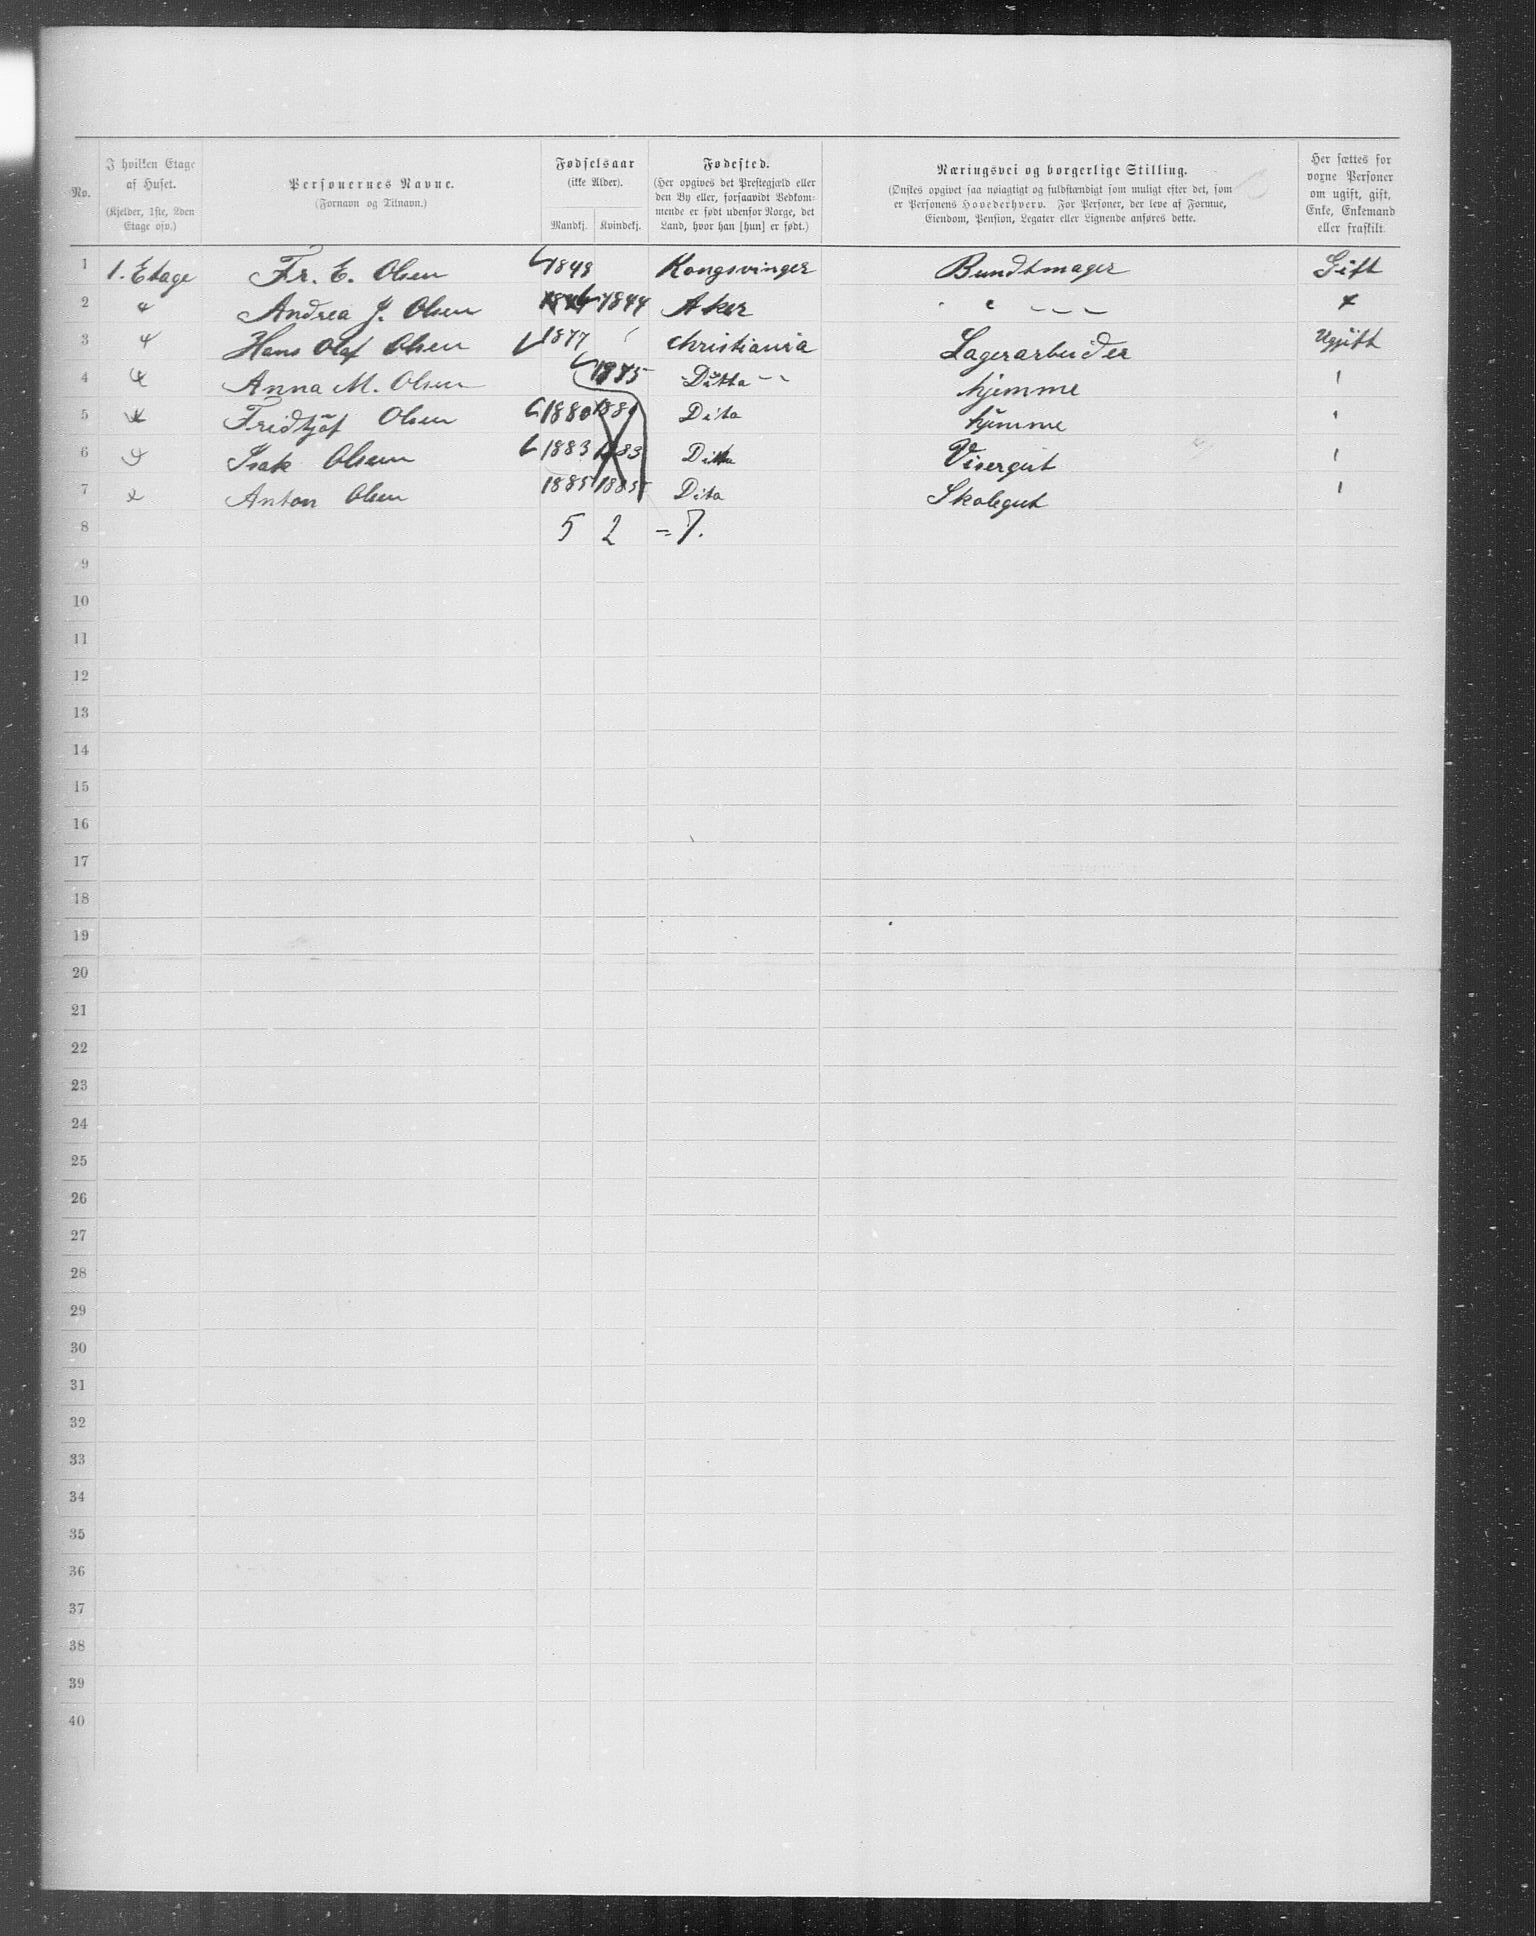 No.
I hvilken Etage af Huset.
(Kjelder, 1ste, 2den Etage osv.)
Personernes Navne.
(Fornavn og Tilnavn.)
Fødselsaar
(ikke Alder).
Mandkj. Kvindekj.
Fødested.
(Her opgives det Prestegjæld eller
den By eller, forsaavidt Vedkom-
mende er født udenfor Norge, det
Land, hvor han [hun] er født.)
Næringsvei og borgerlige Stilling.
(Ønskes opgivet saa nøiagtigt og fuldstændigt som muligt efter det, som
er Personens Hovederhverv. For Personer, der leve af Formue,
Eiendom, Pension, Legater eller Lignende anføres dette.
Her sættes for
voxne Personer
om ugift, gift,
Enke, Enkemand
eller fraskilt.
1 1. Etage Fr. E. Olsen 1848 Kongsvinger Bundtmager Gift
2 " Andrea J. Olsen 1844 Aker " - - - "
3 " Hans Olaf Olsen 1877 Christiania Lagerarbeider Ugift
4 " Anna M. Olsen 1875 Ditto - - hjemme "
5 " Fridtjöf Olsen 1880 1880 Dito hjemme "
6 " Isak Olsen 1883 1883 Ditto Visergut "
7 " Anton Olsen 1885 1885 Dito Skolegut "
8 5 2 = 7.
9
10
11
12
13
14
15
16
17
18
19
20
21
22
23
24
25
26
27
28
29
30
31
32
33
34
35
36
37
38
39
40